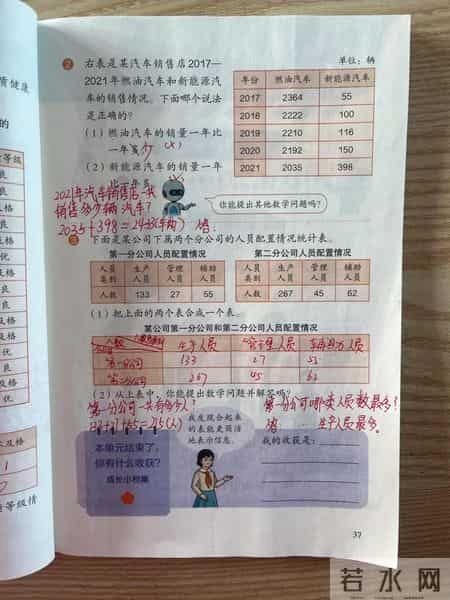 质健康
的
等级
良
良
及格
优
良
及格
良
及格
良
及格
优
良
及格
等级情
② 右表是某汽车销售店2017—
2021年燃油汽车和新能源汽
车的销售情况。下面哪个说法
是正确的?
(1)燃油汽车的销量一年比
一年
(2)新能源汽车的销量一年
单位:辆
年份 燃油汽车 新能源汽车
2017 2364 55
2018 2222 100
2019 2210 116
2020 2192 150
2021 2035 398
2021年汽车销售店共
销售多少辆汽车?
2035+398=2433(辆) 答:
你能提出其他数学问题吗?
③ 下面是某公司下属两个分公司的人员配置情况统计表。
第一分公司人员配置情况
人员类别 生产人员 管理人员 辅助人员
人数 133 27 55
第二分公司人员配置情况
人员类别 生产人员 管理人员 辅助人员
人数 267 45 62
(1)把上面的两个表合成一个表。
某公司第一分公司和第二分公司人员配置情况
人数 生产人员 管理人员 人员
第一分公司 133 27 55
第二分公司 267 45 62
(2)从上表中,你能提出数学问题并解答吗?
第一分公司一共有多少人?
第一分公司哪类人员人数最多?
答: 生产人员最多。
本单元结束了,
你有什么收获?
成长小档案
我发现合起来
的表能更简洁
地表示信息。
我的收获是:
37
若水网